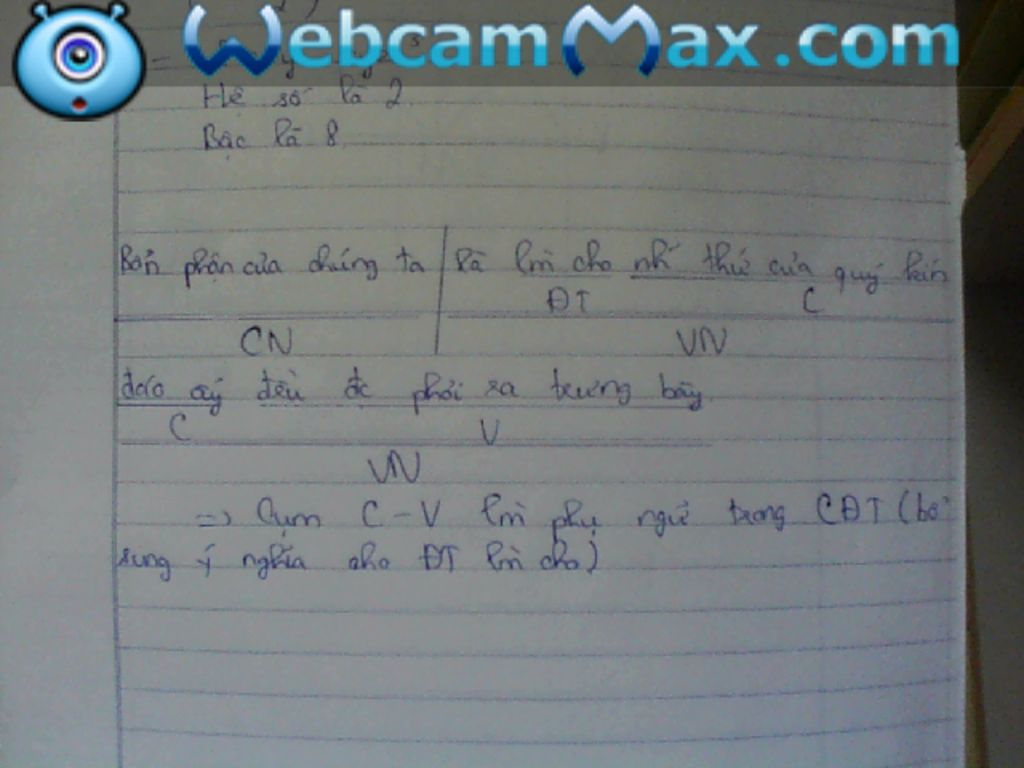 WebcamMax.com
Hệ số là 2.
Bậc là 8.
Bổn phận của chúng ta là lm cho nh~ thứ của quý kín
ĐT C
CN VN
đáo ấy đều đc phải ra trưng bày.
C V
VN
=> Cụm C-V lm phụ ngữ trong CĐT (bổ
sung ý nghĩa cho ĐT lm cho)